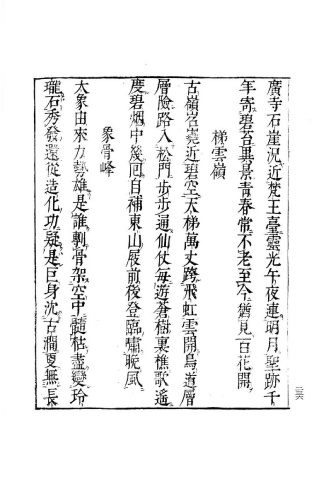 廣寺石崖況近梵王臺靈光午夜連明月聖跡千
年寄碧苔異景青春常不老至今猶見百花開
梯雲嶺
古嶺岧嶤近碧空天梯萬丈跨飛虹雲開鳥道層
層險路入松門步步通仙仗每遊蒼樹裏樵歌遙
度碧烟中幾囘自補東山屐前後登臨嘯晚風
象骨峰
大象由來力勢雄是誰剝骨架空中髓枯盡變玲
瓏石秀發還從造化功疑是巨身沈古澗更無長